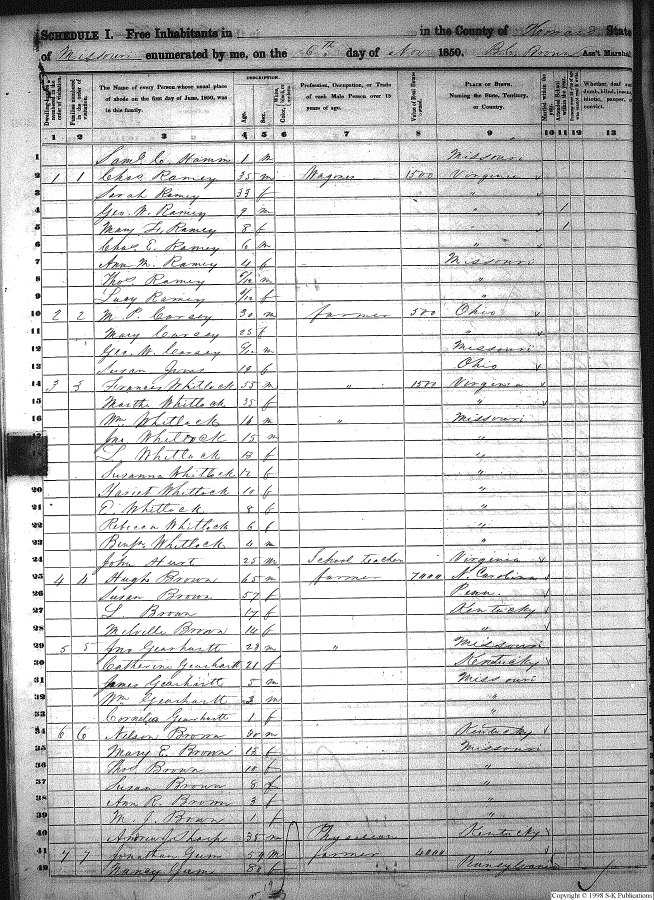 SCHEDULE I. Free Inhabitants in in the County of Howard State
of Missouri enumerated by me, on the 6th day of Nov 1850. Ass't Marshal
DESCRIPTION.
Dwelling-houses numbered in the order of visitation.
Families numbered in the order of visitation.
The Name of every Person whose usual place of abode on the first day of June, 1850, was in this family.
Age.
Sex.
Color,
Profession, Occupation, or Trade of each Male Person over 15 years of age.
Value of Real Estate owned.
PLACE OF BIRTH. Naming the State, Territory, or Country.
Married within the year.
Whether deaf and dumb, blind, insane, idiotic, pauper, or convict.
1 2 3 4 5 6 7 8 9 10 11 12 13
1 Saml C. Hamm 1 m Missouri
2 1 1 Chas Ramey 35 m Wagoner 1500 Virginia
3 Sarah Ramey 33 f "
4 Geo. W. Ramey 9 m " 1
5 Mary F. Ramey 8 f " 1
6 Chas E. Ramey 6 m "
7 Ann M. Ramey 4 f Missouri
8 Thos Ramey m "
9 Lucy Ramey f "
10 2 2 M. P. Corsey 30 m farmer 500 Ohio
11 Mary Corsey 25 f "
12 Geo. W. Corsey m Missouri
13 Susan f Ohio
14 3 3 Frances Whitlock 55 m " 1500 Virginia
15 Martha Whitlock 35 f "
16 Wm Whitlock 16 m " Missouri
17 Jno Whitlock 15 m "
L Whitlock 13 f "
Susanna Whitlock f "
20 Hariet Whitlock 10 f "
21 E. Whitlock 8 f "
22 Rebecca Whitlock 6 f "
23 Benja Whitlock 4 m "
24 John Hurt 25 m School teacher Virginia
25 4 4 Hugh Brown 65 m farmer 7000 N. Carolina
26 Susan Brown 57 f Penn.
27 L Brown 17 f Kentucky
28 Melville Brown 14 f "
29 5 5 Jno Gearhartt 28 m " Missouri
30 Catherine Gearhartt 21 f Kentucky
31 James Gearhartt 5 m Missouri
32 Wm Gearhartt 3 m "
33 Cornelia Gearhartt 1 f "
34 6 6 Nelson Brown 30 m Kentucky
35 Mary E. Brown 13 f Missouri
36 Thos Brown 10 f "
37 Susan Brown 8 f "
38 Ann R. Brown 3 f "
39 M. J. Brown 1 f "
40 Andrew J. Sharp 35 m Physician Kentucky
41 7 7 Jonathan Gum 59 m farmer 4000 "
42 Nancy Gum f Pennsylvania
Copyright © 1998 S-K Publications